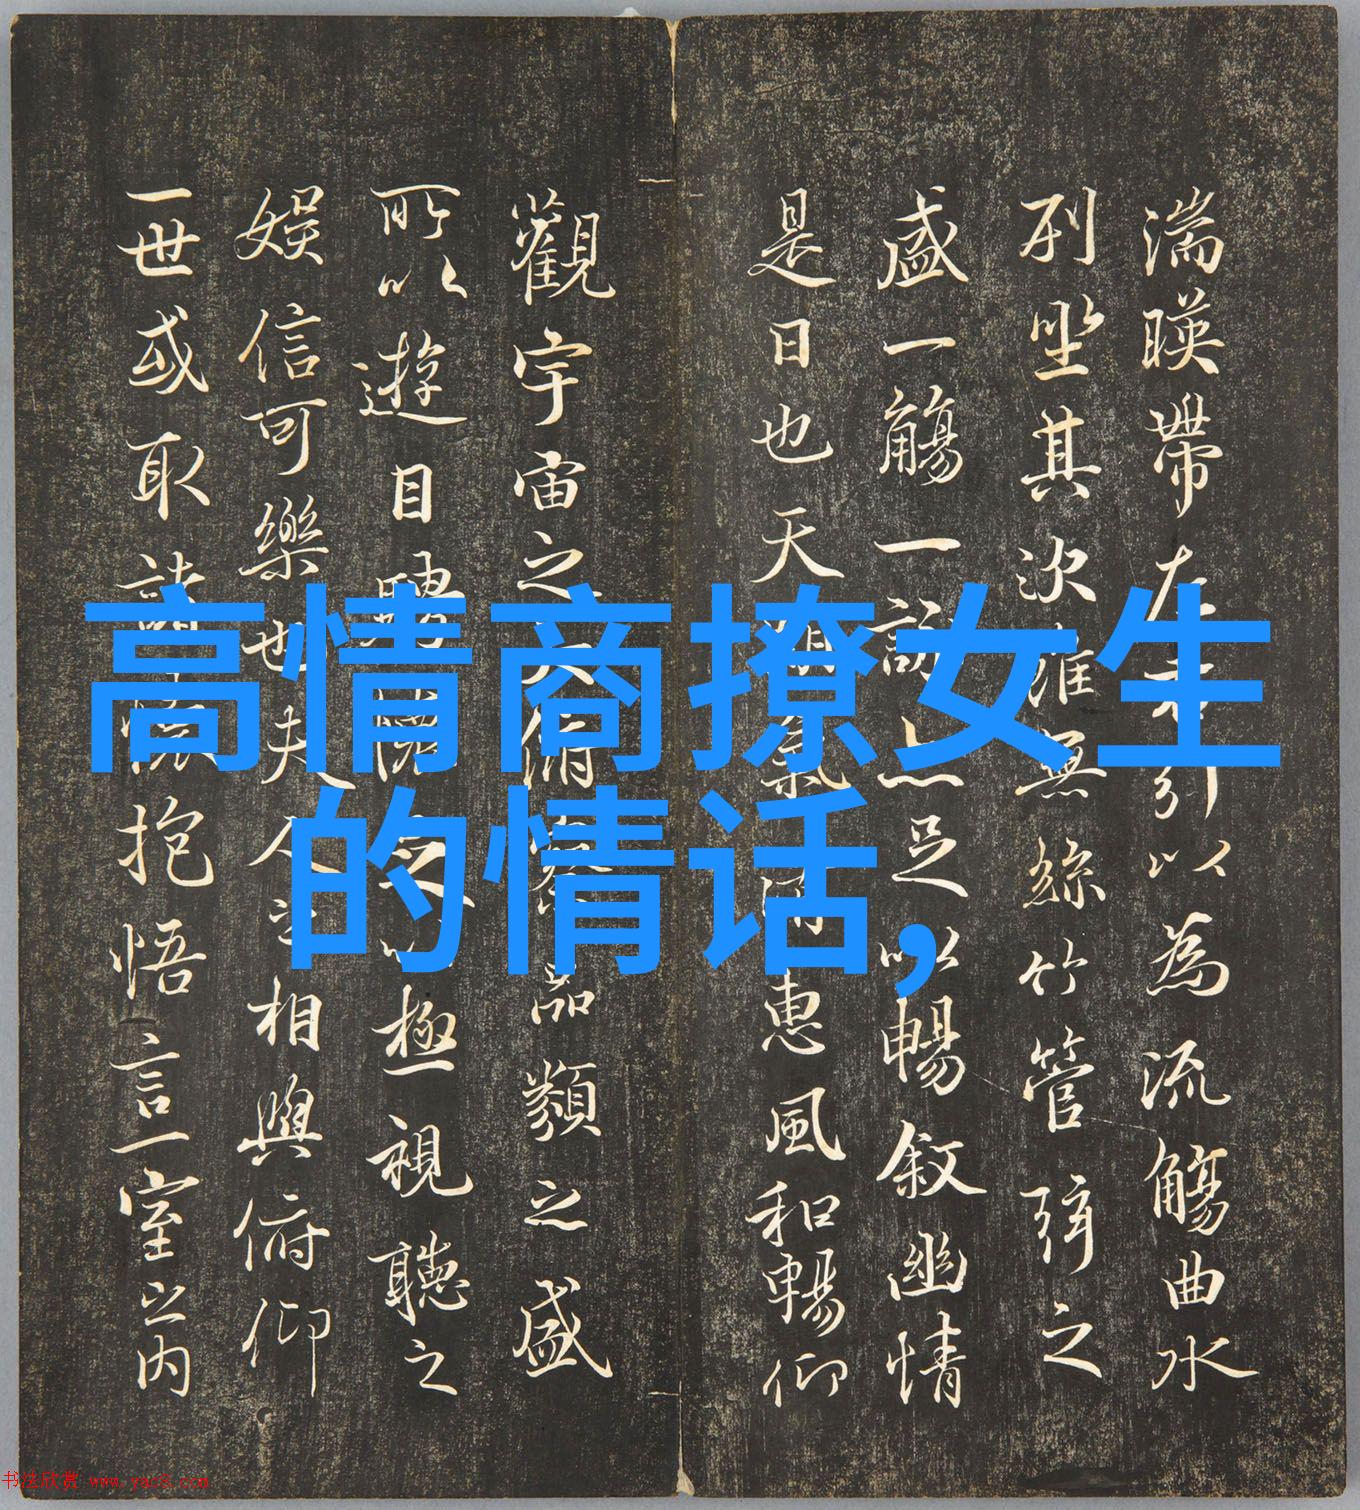 湍暎帶左右引以為流觴曲水
列坐其次雖無絲竹管弦之
盛一觴一詠亦足以暢叙幽情
是日也天朗氣清惠風和暢仰
觀宇宙之大俯察品類之盛
所以遊目騁懷足以極視聽之
娛信可樂也夫人之相與俯仰
一世或取諸懷抱悟言一室之内
高情商撩女生
的情话,
书法欣赏 www.yac8.com